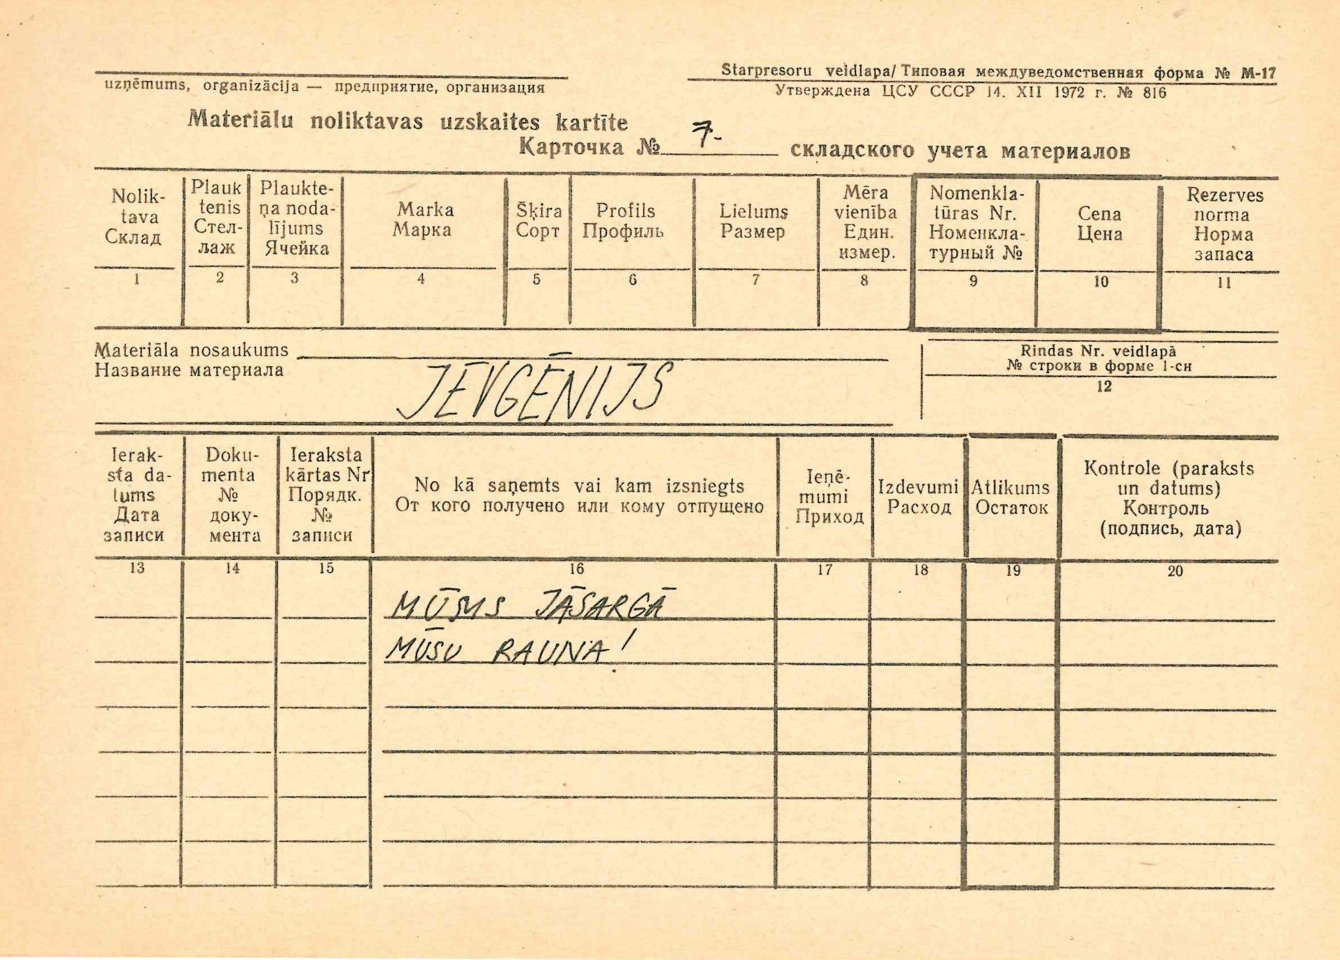 Starpresoru veidlapa/Типовая междуведомственная форма № М-17
uzņēmums, organizācija — предприятие, организация
Утверждена ЦСУ СССР 14. XII 1972 г. № 816
Materiālu noliktavas uzskaites kartīte
Карточка № 7- складского учета материалов
Nolik-
tava
Склад
Plauk
tenis
Стел-
лаж
Plaukte-
ņa noda-
lījums
Ячейка
Marka
Марка
Šķira
Сорт
Profils
Профиль
Lielums
Размер
Mēra
vienība
Един.
измер.
Nomenkla-
tūras Nr.
Номенкла-
турный №
Cena
Цена
Rezerves
norma
Норма
запаса
1 2 3 4 5 6 7 8 9 10 11
Materiāla nosaukums
Название материала
JĒVGĒŅIJS
Rindas Nr. veidlapā
№ строки в форме 1-сн
12
Ierak-
sta da-
tums
Дата
записи
Doku-
menta
№
доку-
мента
Ieraksta
kārtas Nr
Порядк.
№
записи
No kā saņemts vai kam izsniegts
От кого получено или кому отпущено
Ieņē-
mumi
Приход
Izdevumi
Расход
Atlikums
Остаток
Kontrole (paraksts
un datums)
Контроль
(подпись, дата)
13 14 15 16 17 18 19 20
MŪSMS JĀSARGĀ
MŪSU RAUNA!